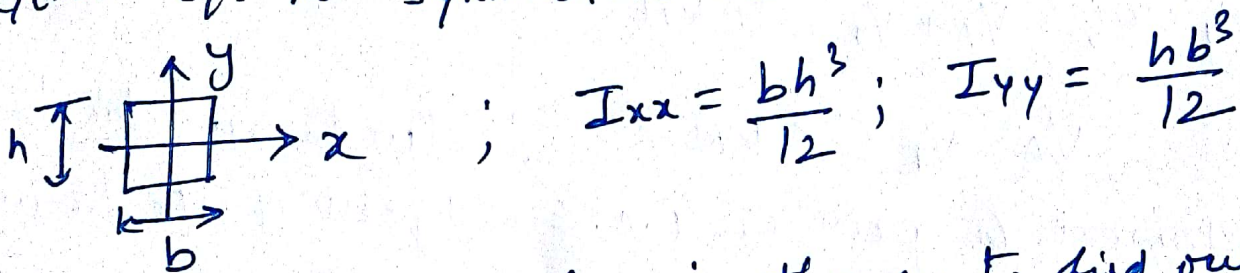 y
h
x ; Ixx = bh³/12 ; Iyy = hb³/12
b